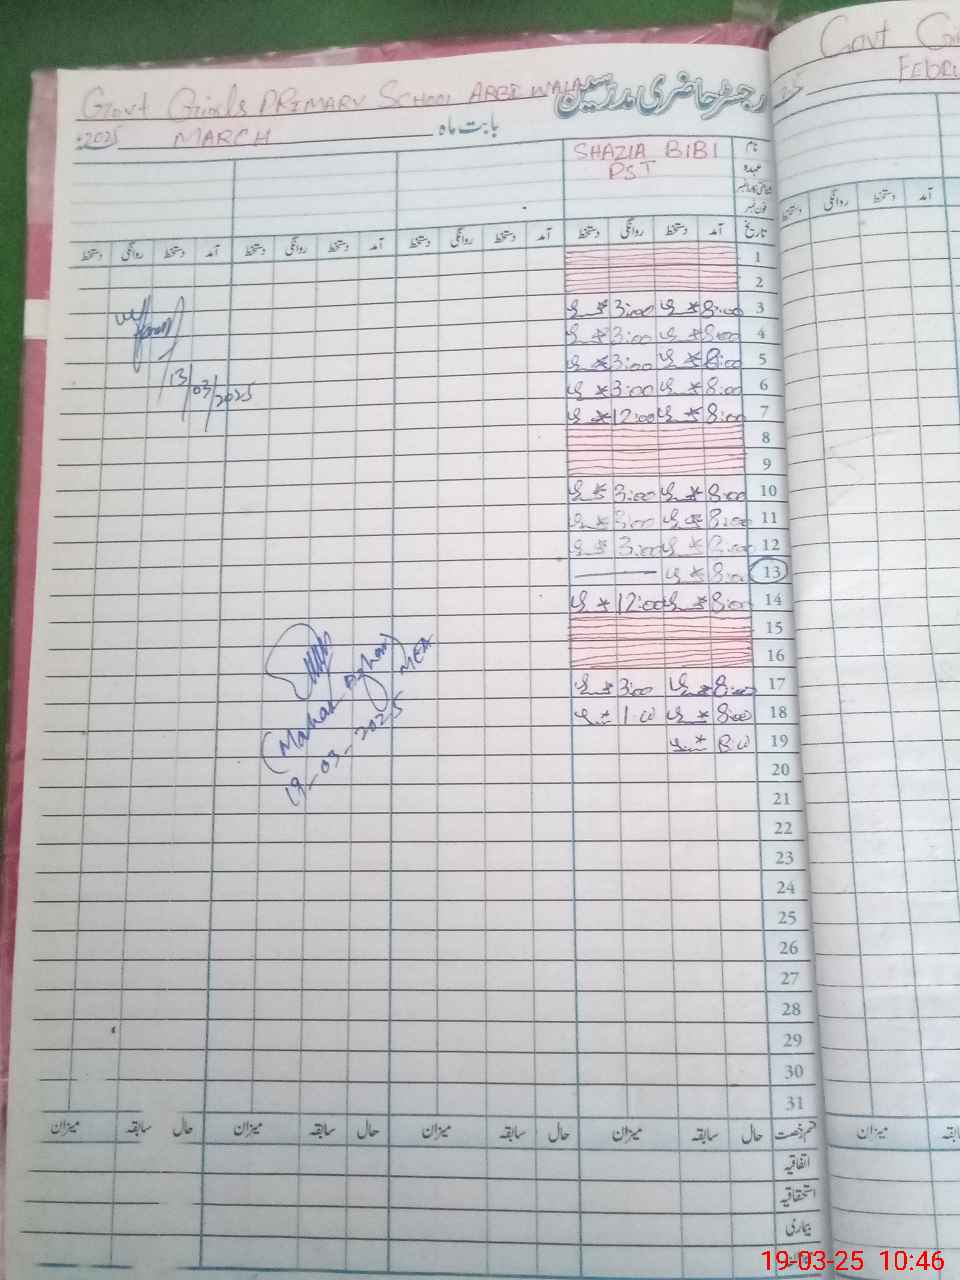 Govt Girls PRIMARY SCHOOL ARBI WALA رجسٹر حاضری مدرسین
2025 MARCH بابت ماہ
SHAZIA BIBI نام
PST عہدہ
شناختی کارڈ نمبر
فون نمبر
دستخط روانگی دستخط آمد دستخط روانگی دستخط آمد دستخط روانگی دستخط آمد دستخط روانگی دستخط آمد تاریخ
1
2
3:00 8:00 3
3:00 8:00 4
3:00 8:00 5
3:00 8:00 6
12:00 8:00 7
8
9
3:00 8:00 10
3:00 8:00 11
3:00 8:00 12
8:00 13
12:00 8:00 14
15
16
3:00 8:00 17
1:00 8:00 18
8:00 19
20
21
22
23
24
25
26
27
28
29
30
31
13/03/2025
MEA
19-03-2025
میزان سابقہ حال میزان سابقہ حال میزان سابقہ حال میزان سابقہ حال قسم رخصت
اتفاقیہ
استحقاقیہ
بیماری
Govt
FEBRU
دستخط روانگی دستخط آمد
میزان
19-03-25 10:46